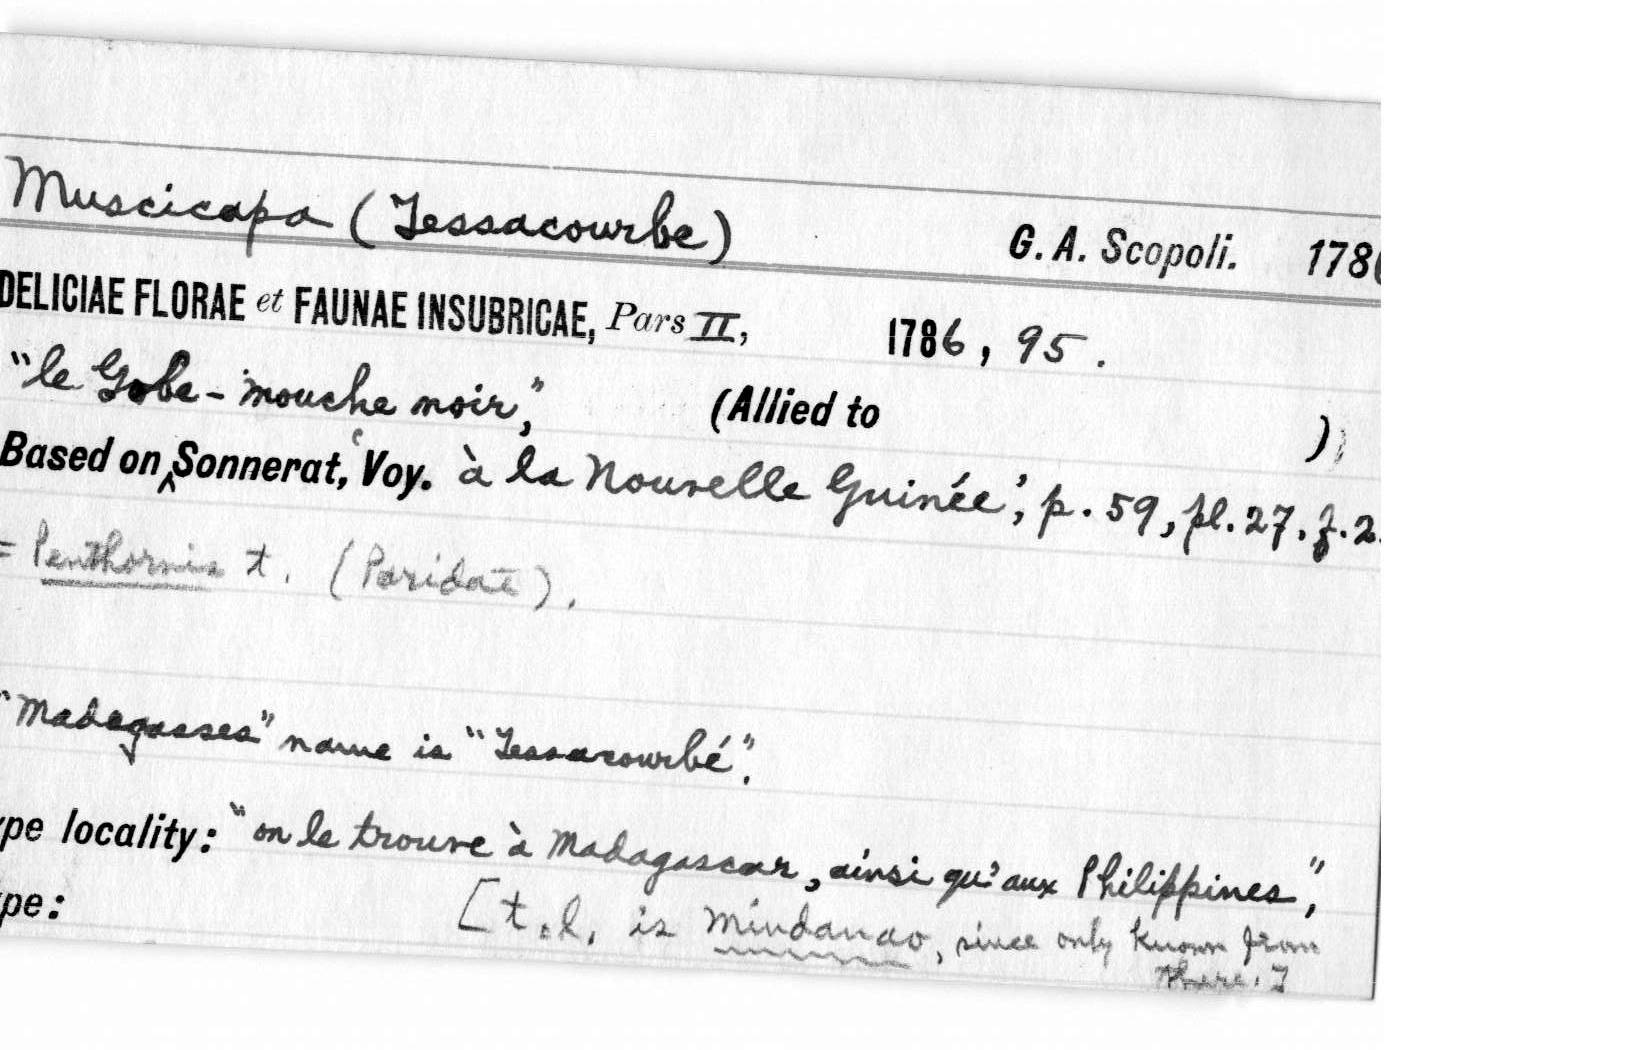 Muscicapa (Tessacourbe) G. A. Scopoli. 1786
DELICIAE FLORAE et FAUNAE INSUBRICAE, Pars II, 1786, 95.
"le Gobe-mouche noir," (Allied to )
Based on ^ Sonnerat, 'Voy. à la Nouvelle Guinée', p. 59, pl. 27. f. 2.
= Penthornis t. (Paridae).
"Madegasses" name is "Tessacourbé".
ype locality: "on le trouve à Madagascar, ainsi qu'aux Philippines,"
ype: [t.l. is Mindanao, since only known from
there.]